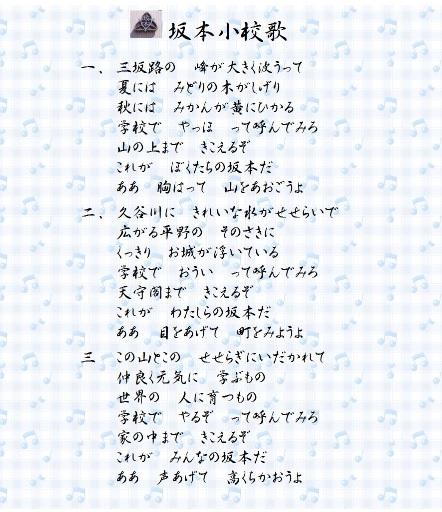 坂本小校歌
一、三坂路の 峰が大きく波うって
夏には みどりの木がしげり
秋には みかんが黄にひかる
学校で やっほ って呼んでみろ
山の上まで きこえるぞ
これが ぼくたちの坂本だ
ああ 胸はって 山をあおごうよ
二、久谷川に きれいな水がせせらいで
広がる平野の そのさきに
くっきり お城が浮いている
学校で おうい って呼んでみろ
天守閣まで きこえるぞ
これが わたしらの坂本だ
ああ 目をあげて 町をみようよ
三 この山とこの せせらぎにいだかれて
仲良く元気に 学ぶもの
世界の 人に育つもの
学校で やるぞ って呼んでみろ
家の中まで きこえるぞ
これが みんなの坂本だ
ああ 声あげて 高くちかおうよ